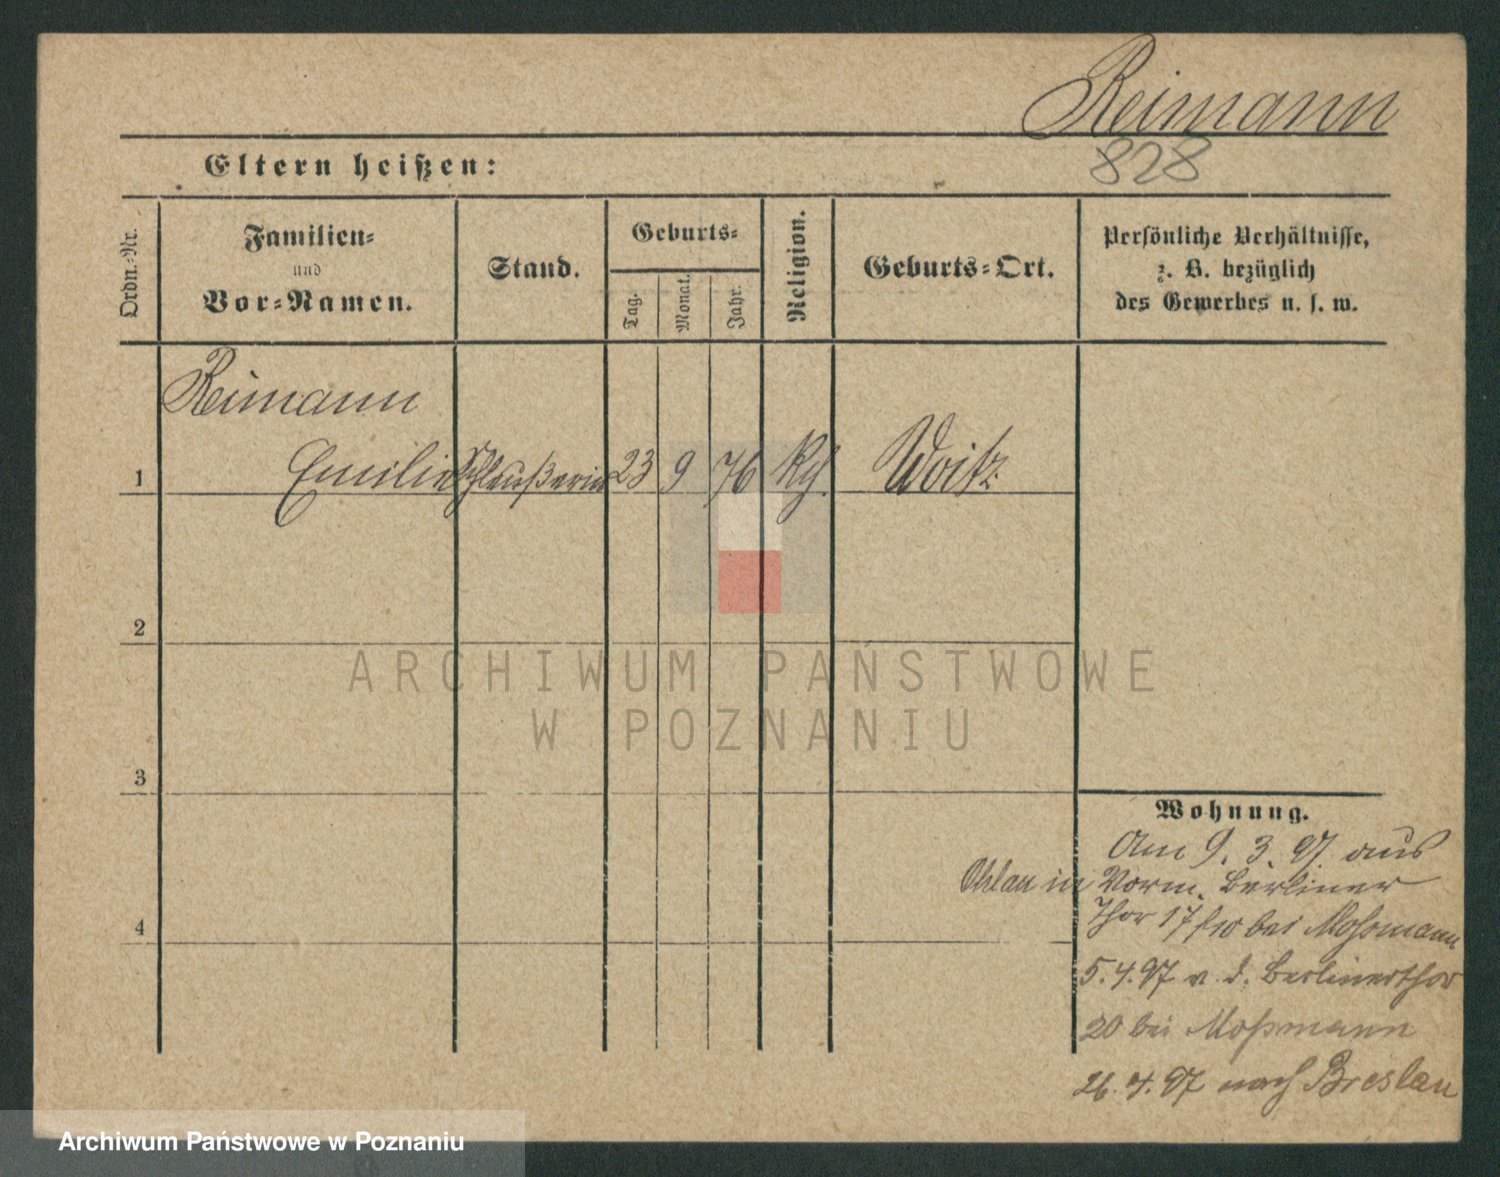 Reimann
828
Eltern heißen:
Ordn.-Nr.
Familien-
und
Vor-Namen.
Stand.
Geburts-
Tag.
Monat.
Jahr.
Religion.
Geburts-Ort.
Persönliche Verhältnisse,
z. B. bezüglich
des Gewerbes u. s. w.
Reimann
1 Emilie Schleußerin 23 9 76 Woitz
2
3
4
Wohnung.
Am 9. 3. 97 aus
Ohlau in Vorm. Berliner
Thor 17/ bei Moßmann
5. 4. 97 v. d. Berlinerthor
20 bei Moßmann
26. 4. 97 nach Breslau
ARCHIWUM PAŃSTWOWE
W POZNANIU
Archiwum Państwowe w Poznaniu